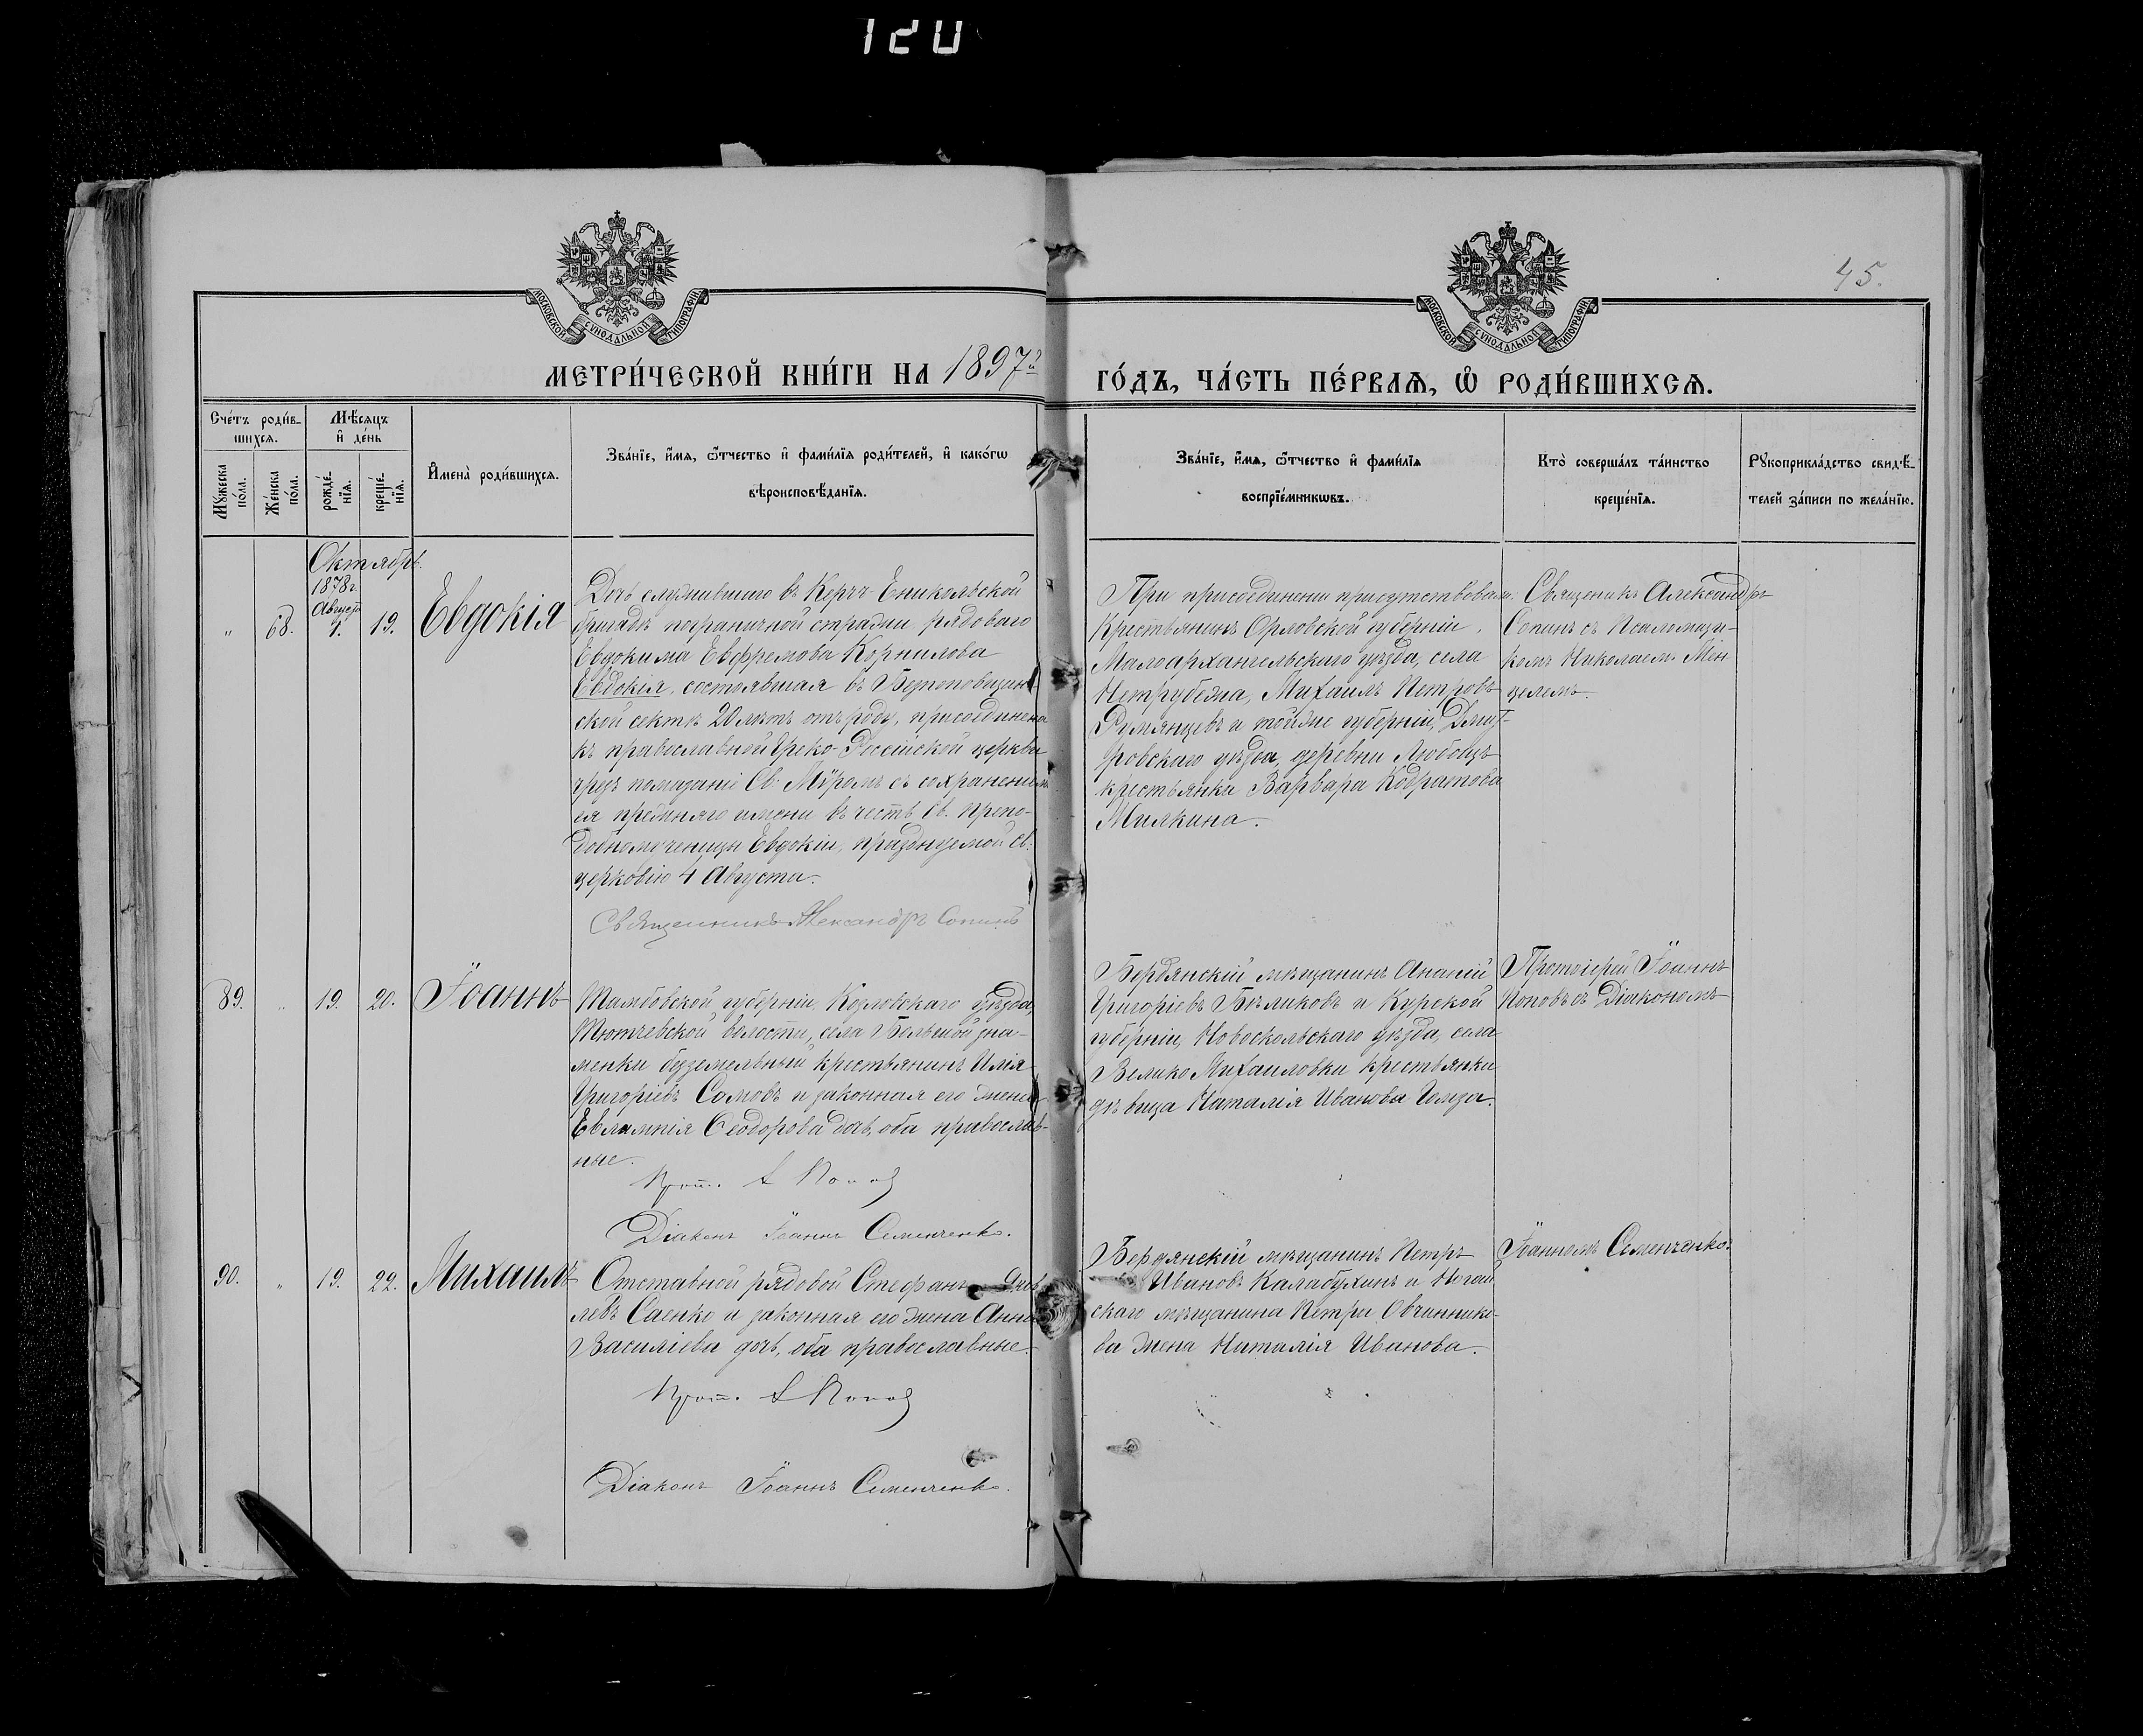 120
45.
МОСКОВСКОЙ СУНОДАЛЬНОЙ ТИПОГРАФІИ
МОСКОВСКОЙ СУНОДАЛЬНОЙ ТИПОГРАФІИ
МЕТРИ́ЧЕСКОЙ КНИ́ГИ НА 1897й ГО́ДЪ, ЧА́СТЬ ПЕ́РВАѦ, Ѡ РОДИ́ВШИХСѦ.
Сче́тъ роди́в-
шихсѧ.
Мꙋжеска по́ла.
Же́нска по́ла.
Мѣ́сѧцъ
и де́нь
рожде́-
нїѧ.
креще́-
нїѧ.
Имена̀ роди́вшихсѧ.
Зва́нїе, и́мѧ, ѻ́тчество и фами́лїѧ роди́телей, и како́гѡ
вѣроисповѣ́данїѧ.
Зва́нїе, и́мѧ, ѻ́тчество и фами́лїѧ
воспрїе́мникѡвъ.
Кто̀ соверша́лъ та́инство
креще́нїѧ.
Рꙋкоприкла́дство свидѣ́-
телей за́писи по жела́нїю.
Октябрь.
1878г.
Августа
„ 68. 4. 19. Евдокія
Дочь служившаго въ Керчь Еникольской
бригадѣ пограничной стражи рядоваго
Евдокима Евфремова Корнилова
Евдокія, состоявшая въ
ской сектѣ 20 лѣтъ отъ роду, присоединена
къ православной Греко-Россійской церкви
чрезъ помазаніе Св. Мѵромъ съ сохраненіемъ
ея прежняго имени въ честь Св. препо-
добномученицы Евдокіи, празднуемой Св.
церковію 4 Августа.
Священникъ Александръ Сопинъ
При присоединении присутствовали:
Крестьянинъ Орловской губерніи,
Малоархангельскаго уѣзда, села
Нетрубежа, Михаилъ Петровъ
Румянцевъ и той же губерніи, Дмит-
ровскаго уѣзда, деревни Любощь
крестьянка Варвара Кодратова
Милкина.
Священикъ Александръ
Сопинъ съ Псаломщи-
комъ Николаемъ Мен
целемъ.
89. „ 19. 20. Іоаннъ
Тамбовской губерніи, Козловскаго уѣзда,
Тютчевской волости, села Большой Зна-
менки безземельный крестьянинъ Илія
Григоріевъ Сомовъ и законная его жена
Евлампія Ѳеодорова дочь, оба православ-
ные.
Прот. І. Поповъ
Діаконъ Іоаннъ Семенченко.
Бердянскій мѣщанинъ Ананій
Григоріевъ Бѣликовъ и Курской
губерніи, Новоскольскаго уѣзда, села
Велико Михаиловки крестьянка
дѣвица Наталія Иванова
Протоіерей Іоаннъ
Поповъ съ Діакономъ
Іоанномъ Семенченко.
90. „ 19. 22. Михаилъ
Отставной рядовой Стефанъ Яков
левъ Саенко и законная его жена Анна
Василіева дочь, оба православные.
Прот. І. Поповъ
Діаконъ Іоаннъ Семенченко.
Бердянскій мѣщанинъ Петръ
Ивановъ Калабухинъ и Ногай
скаго мѣщанина Петра Овчиннико-
ва жена Наталія Иванова.